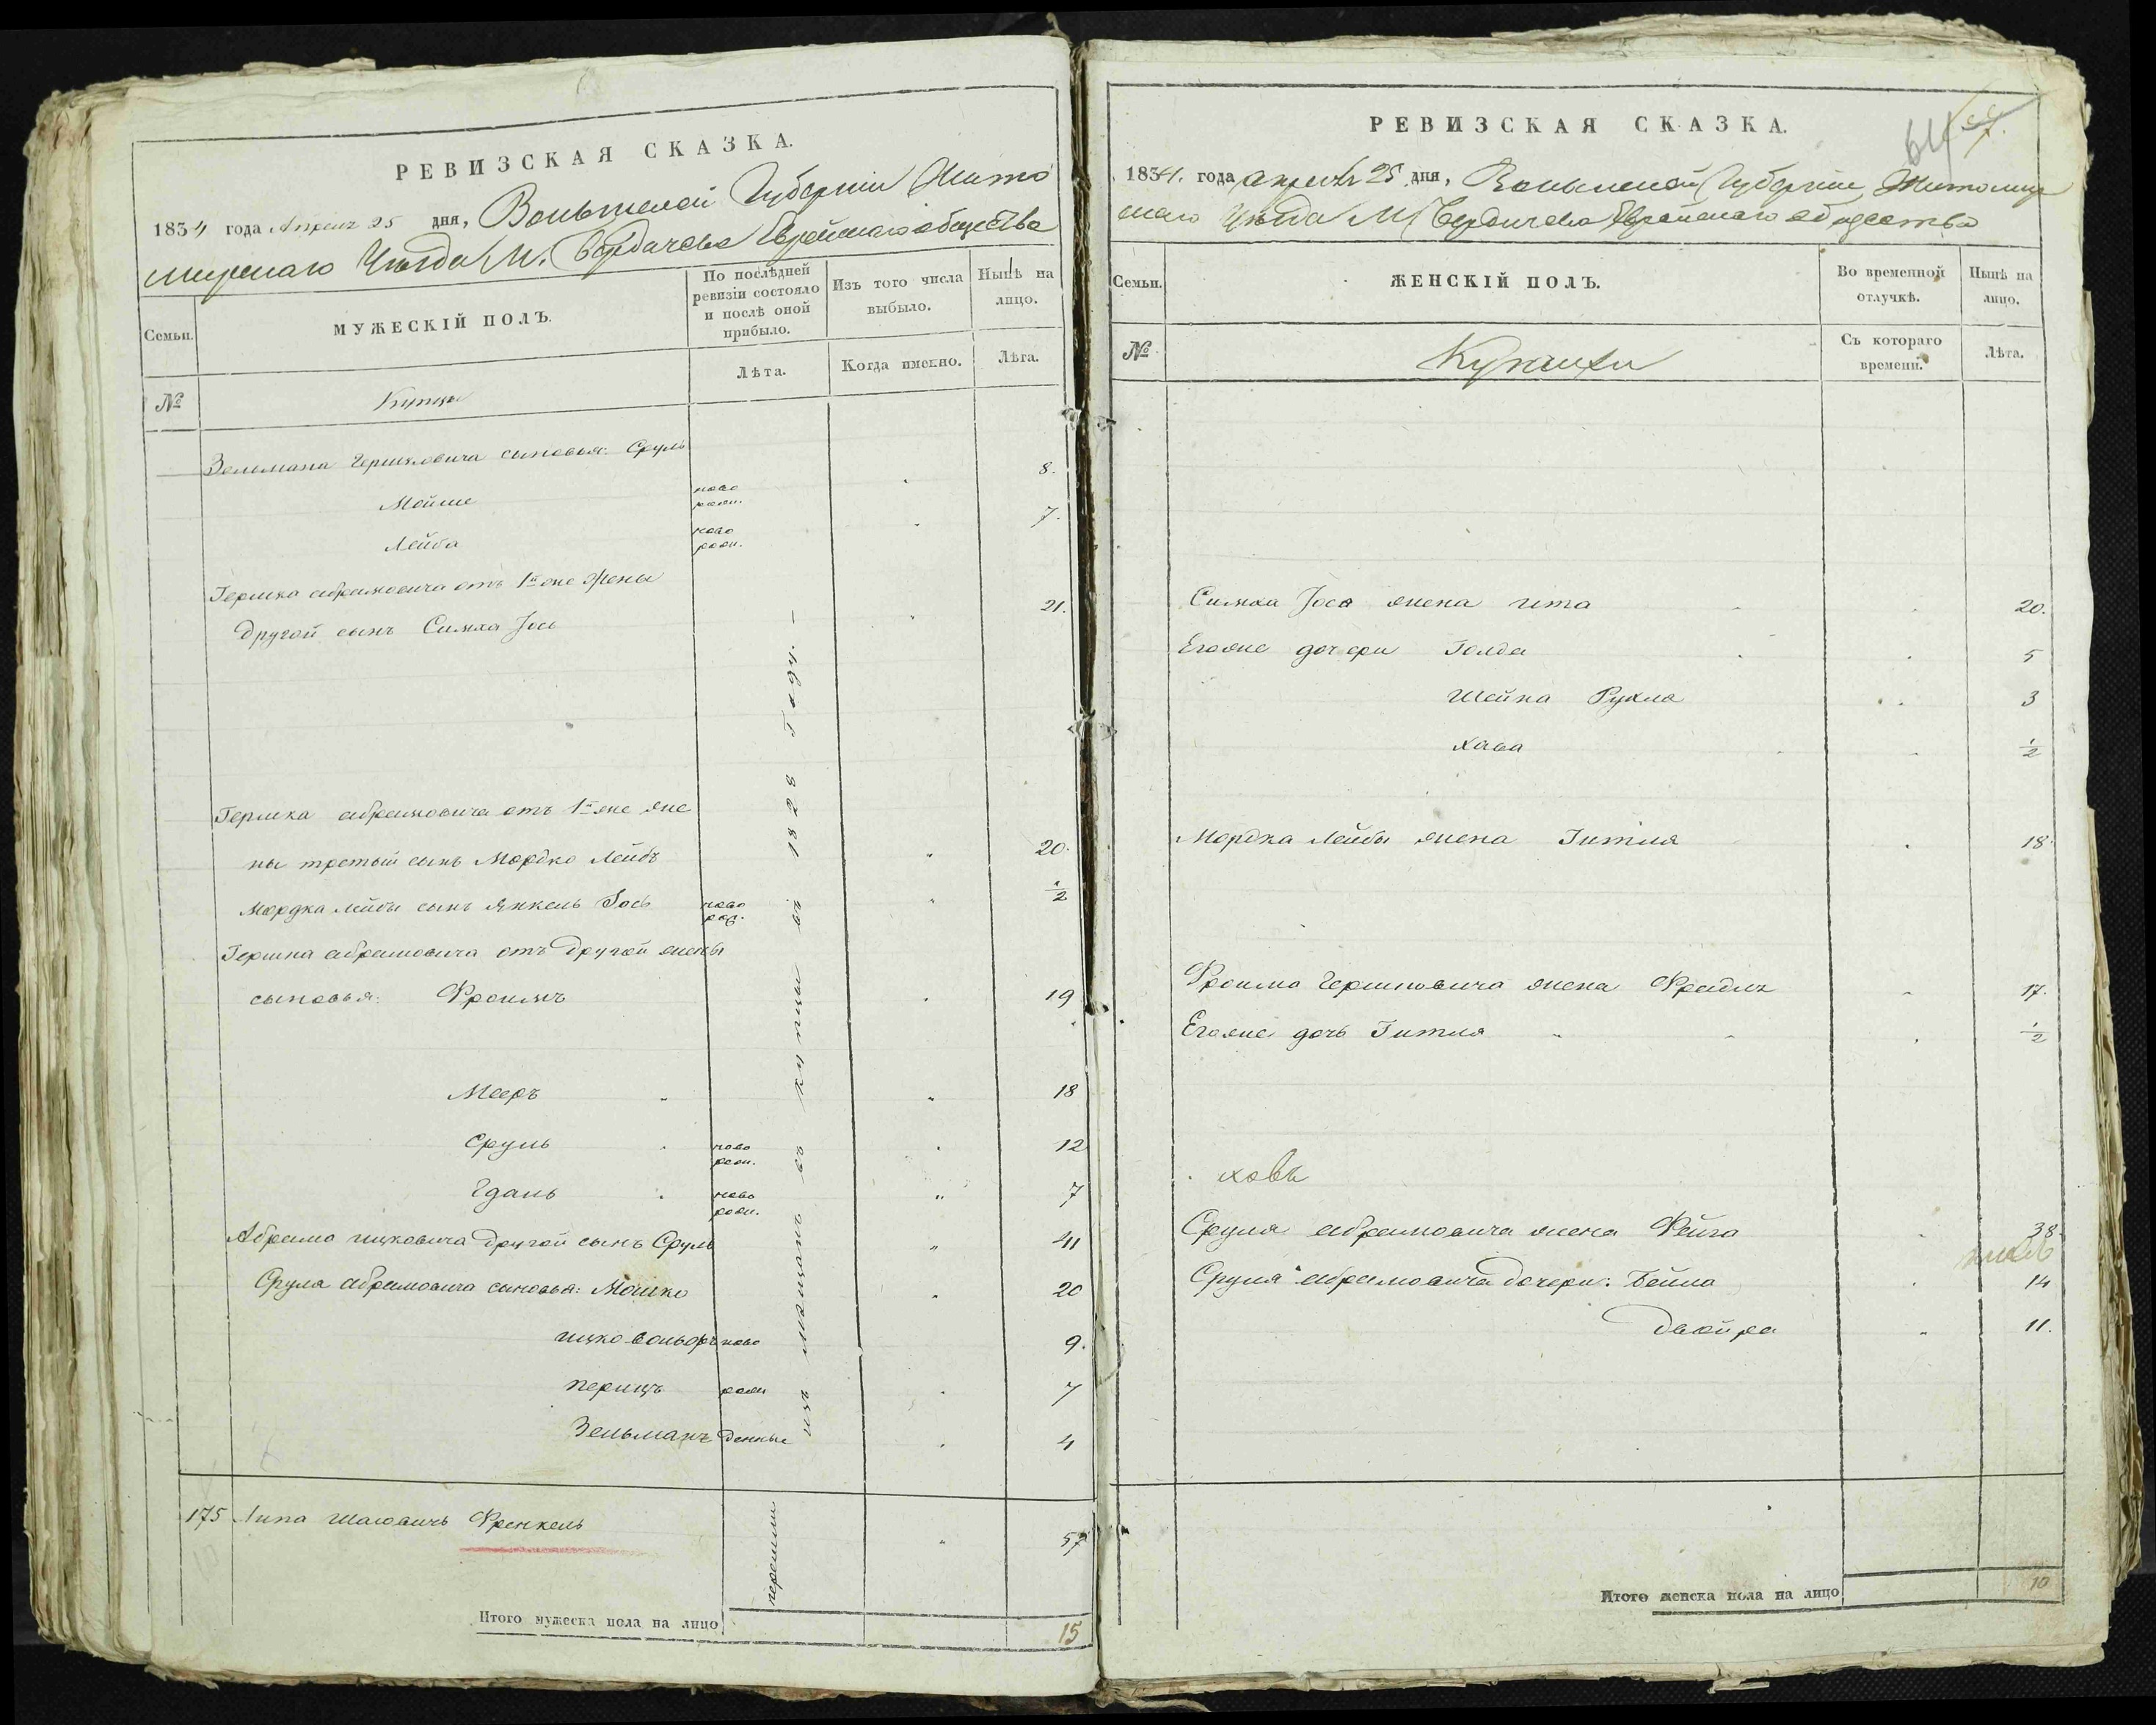 РЕВИЗСКАЯ СКАЗКА.
1834 года Апреля 25 дня, Волынской Губернии Жито
мирскаго Уезда М. Бердичева Еврейскаго общества
Семьи.
МУЖЕСКІЙ ПОЛЪ.
По послѣдней ревизіи состояло и послѣ оной прибыло.
Изъ того числа выбыло.
Нынѣ на лицо.
№
Купцы
Лѣта.
Когда именно.
Лѣта.
Зельмана Гершковича сыновья: Сруль 8.
Мойше ново рожн. 7.
Лейба ново рожн.
Гершка Абрамовича отъ 1й же жены
другой сынъ Симха Іось 21.
Гершка Абрамовича отъ 1й же же
ны третый сынъ Мордко Лейбъ 20.
Мордка Лейбы сынъ Янкель Іось ново рож. ½
Гершка Абрамовича отъ другой жены
сыновья: Фроимъ 19
Мееръ 18
Сруль ново рожн. 12
Гдаль ново рожн. 7
Абрама Ицковича другой сынъ Сруль 41
Сруля Абрамовича сыновья: Мошко 20
Ицко Вольфъ ново 9.
Перицъ рожн 7
Зельманъ денные 4
изъ мещанъ въ купцы въ 1828 году.
175 Липа Шаовичъ Френкель 57
перешли
Итого мужеска пола на лицо 15
64
РЕВИЗСКАЯ СКАЗКА.
1834. года Апреля 25 дня, Волынской Губернии Житомир
скаго Уезда М Бердичева Еврейскаго общества
Семьи.
ЖЕНСКІЙ ПОЛЪ.
Во временной отлучкѣ.
Нынѣ на лицо.
№
Купчихи
Съ котораго времени.
Лѣта.
Симха Іося жена Ита 20.
Егоже дочери Голда 5
Шейна Рухла 3
Хава ½
Мордка Лейбы жена Гитля 18
Фроима Гершковича жена Фрейда 17.
Егоже дочь Гитля ½
Сруля Абрамовича жена Фейга 38.
Сруля Абрамовича дочери: Бейла 14
Двойра 11.
Итого женска пола на лицо 10